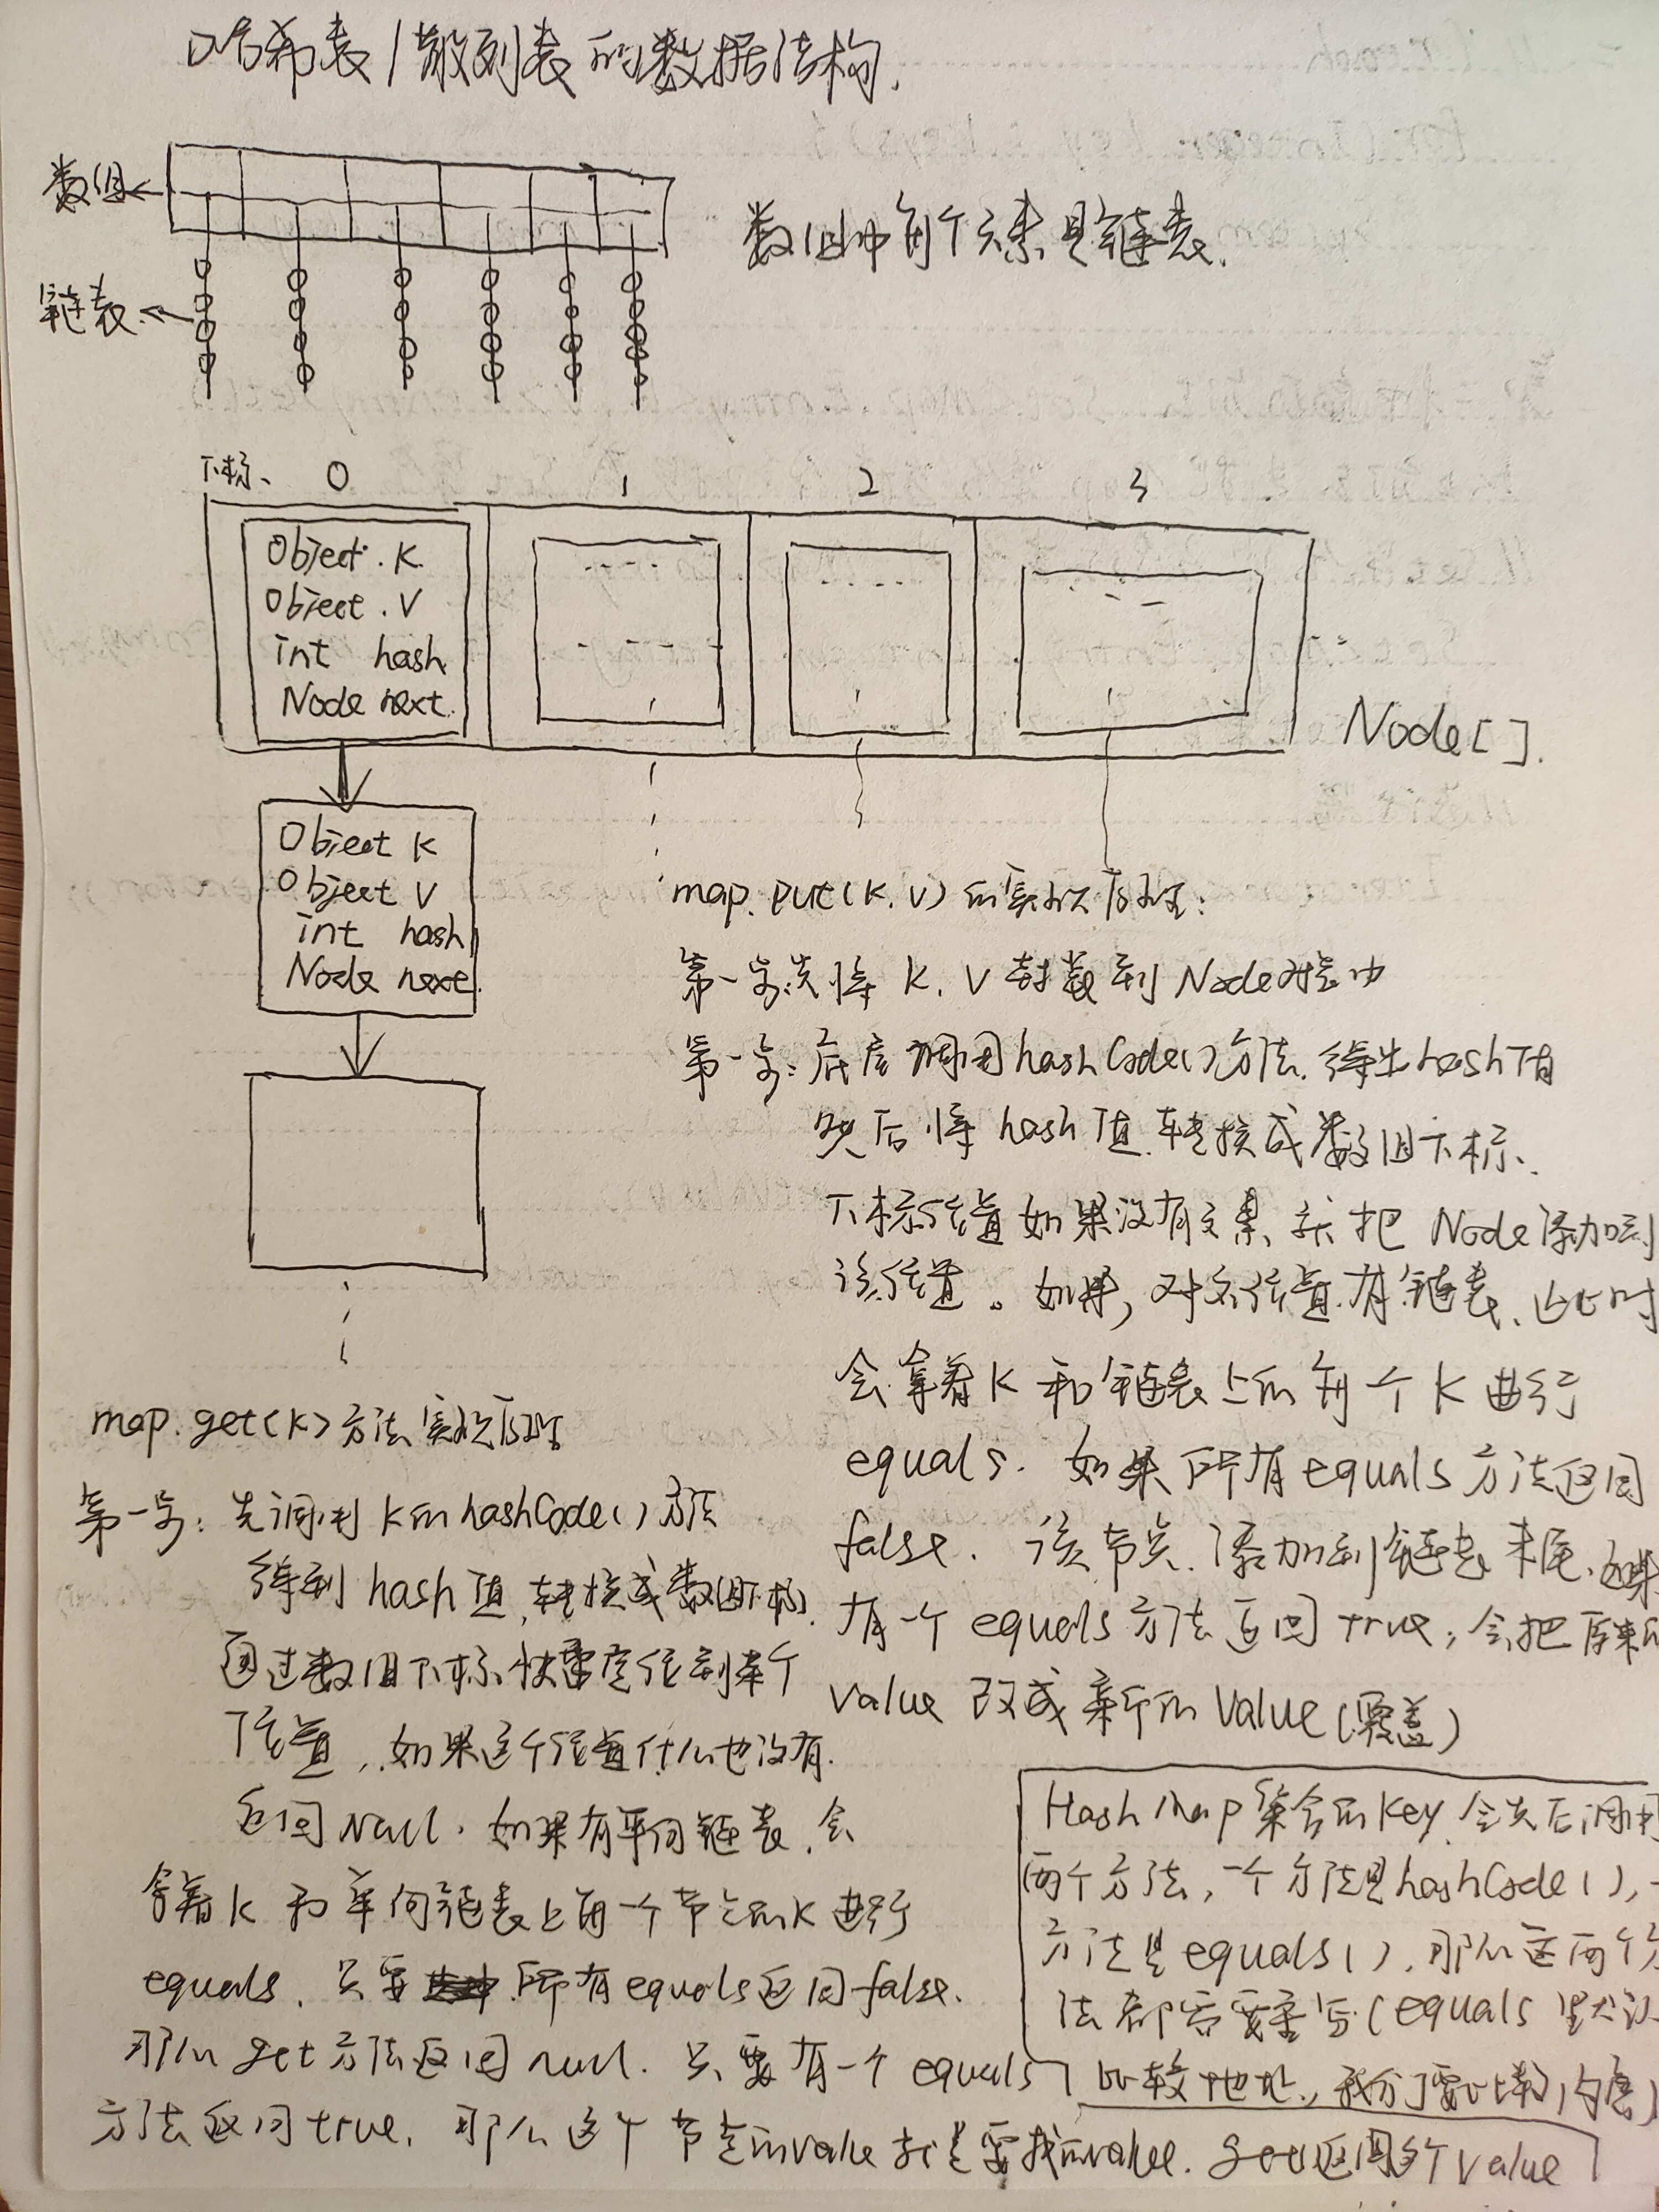 哈希表/散列表的数据结构.
数组
数组中每个元素是链表.
链表
下标、 0 1 2 3
Object. K
Object. V
int hash
Node next.
Node[].
Object K
Object V
int hash
Node next.
map.put(K.V)的实现原理:
第一步:先将 K, V 封装到Node对象中
第一步:底层调用hashCode()方法.得出hash值
然后将 hash 值转换成数组下标、
下标位置如果没有元素、就把 Node添加到
该位置。如果,对应位置有链表、此时
会拿着K 和链表上的每个 K 进行
equals. 如果所有equals方法返回
false. 该节点添加到链表末尾、如果
有一个 equals方法返回 true, 会把原来的
value 改成新的 Value(覆盖)
map.get(K)方法实现原理
第一步:先调用K的hashCode()方法
得到 hash 值,转换成数组下标.
通过数组下标快速定位到某个
位置,如果这个位置什么也没有.
返回Null. 如果有单向链表,会
拿着K 和单向链表上每一个节点的K进行
equals、只要 所有equals返回false.
那么get方法返回 null. 只要有一个 equals
方法返回true. 那么这个节点的value就是要找的value. get返回这个value
HashMap集合的Key 会先后调用
两个方法,一个方法是hashCode(),一
方法是equals(),那么这两个方
法都需要重写(equals 默认
比较地址,我们要比较内容)